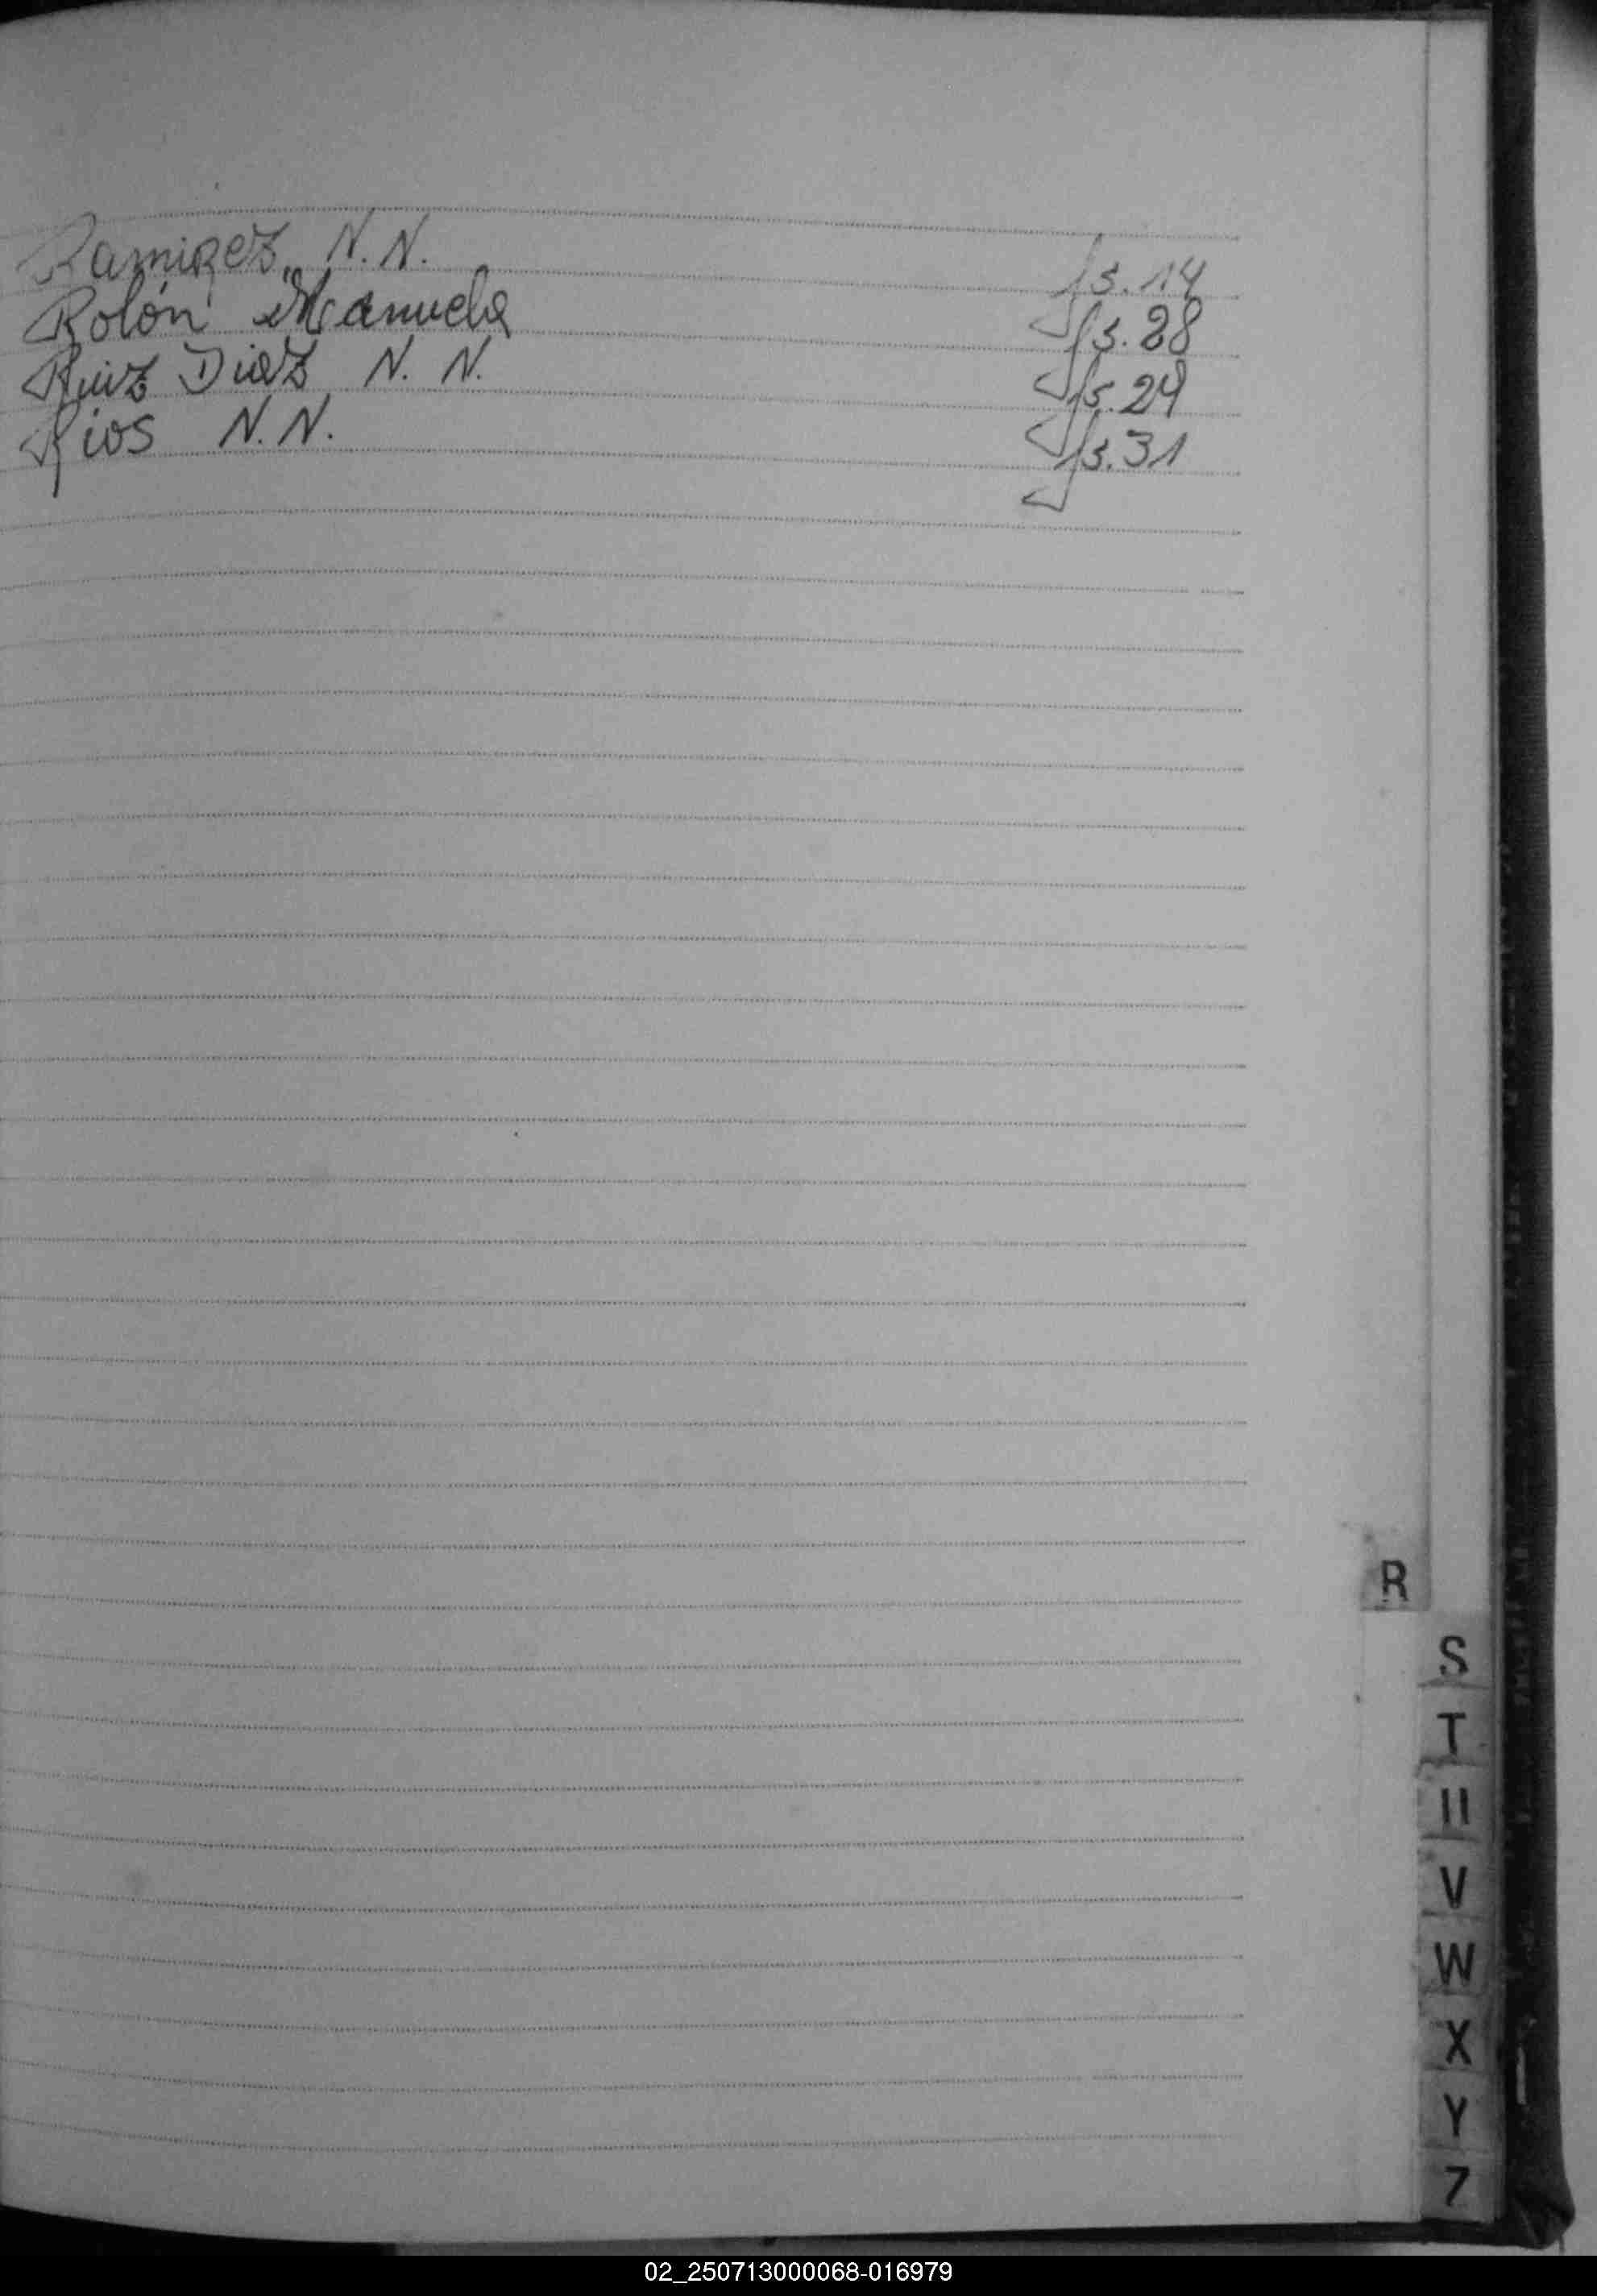 Ramirez, N.N. fs. 14
Rolón Manuela fs. 28
Ruiz Diaz N. N. fs. 29
Rios N.N. fs. 31
R
S
T
U
V
W
X
Y
Z
02_250713000068-016979